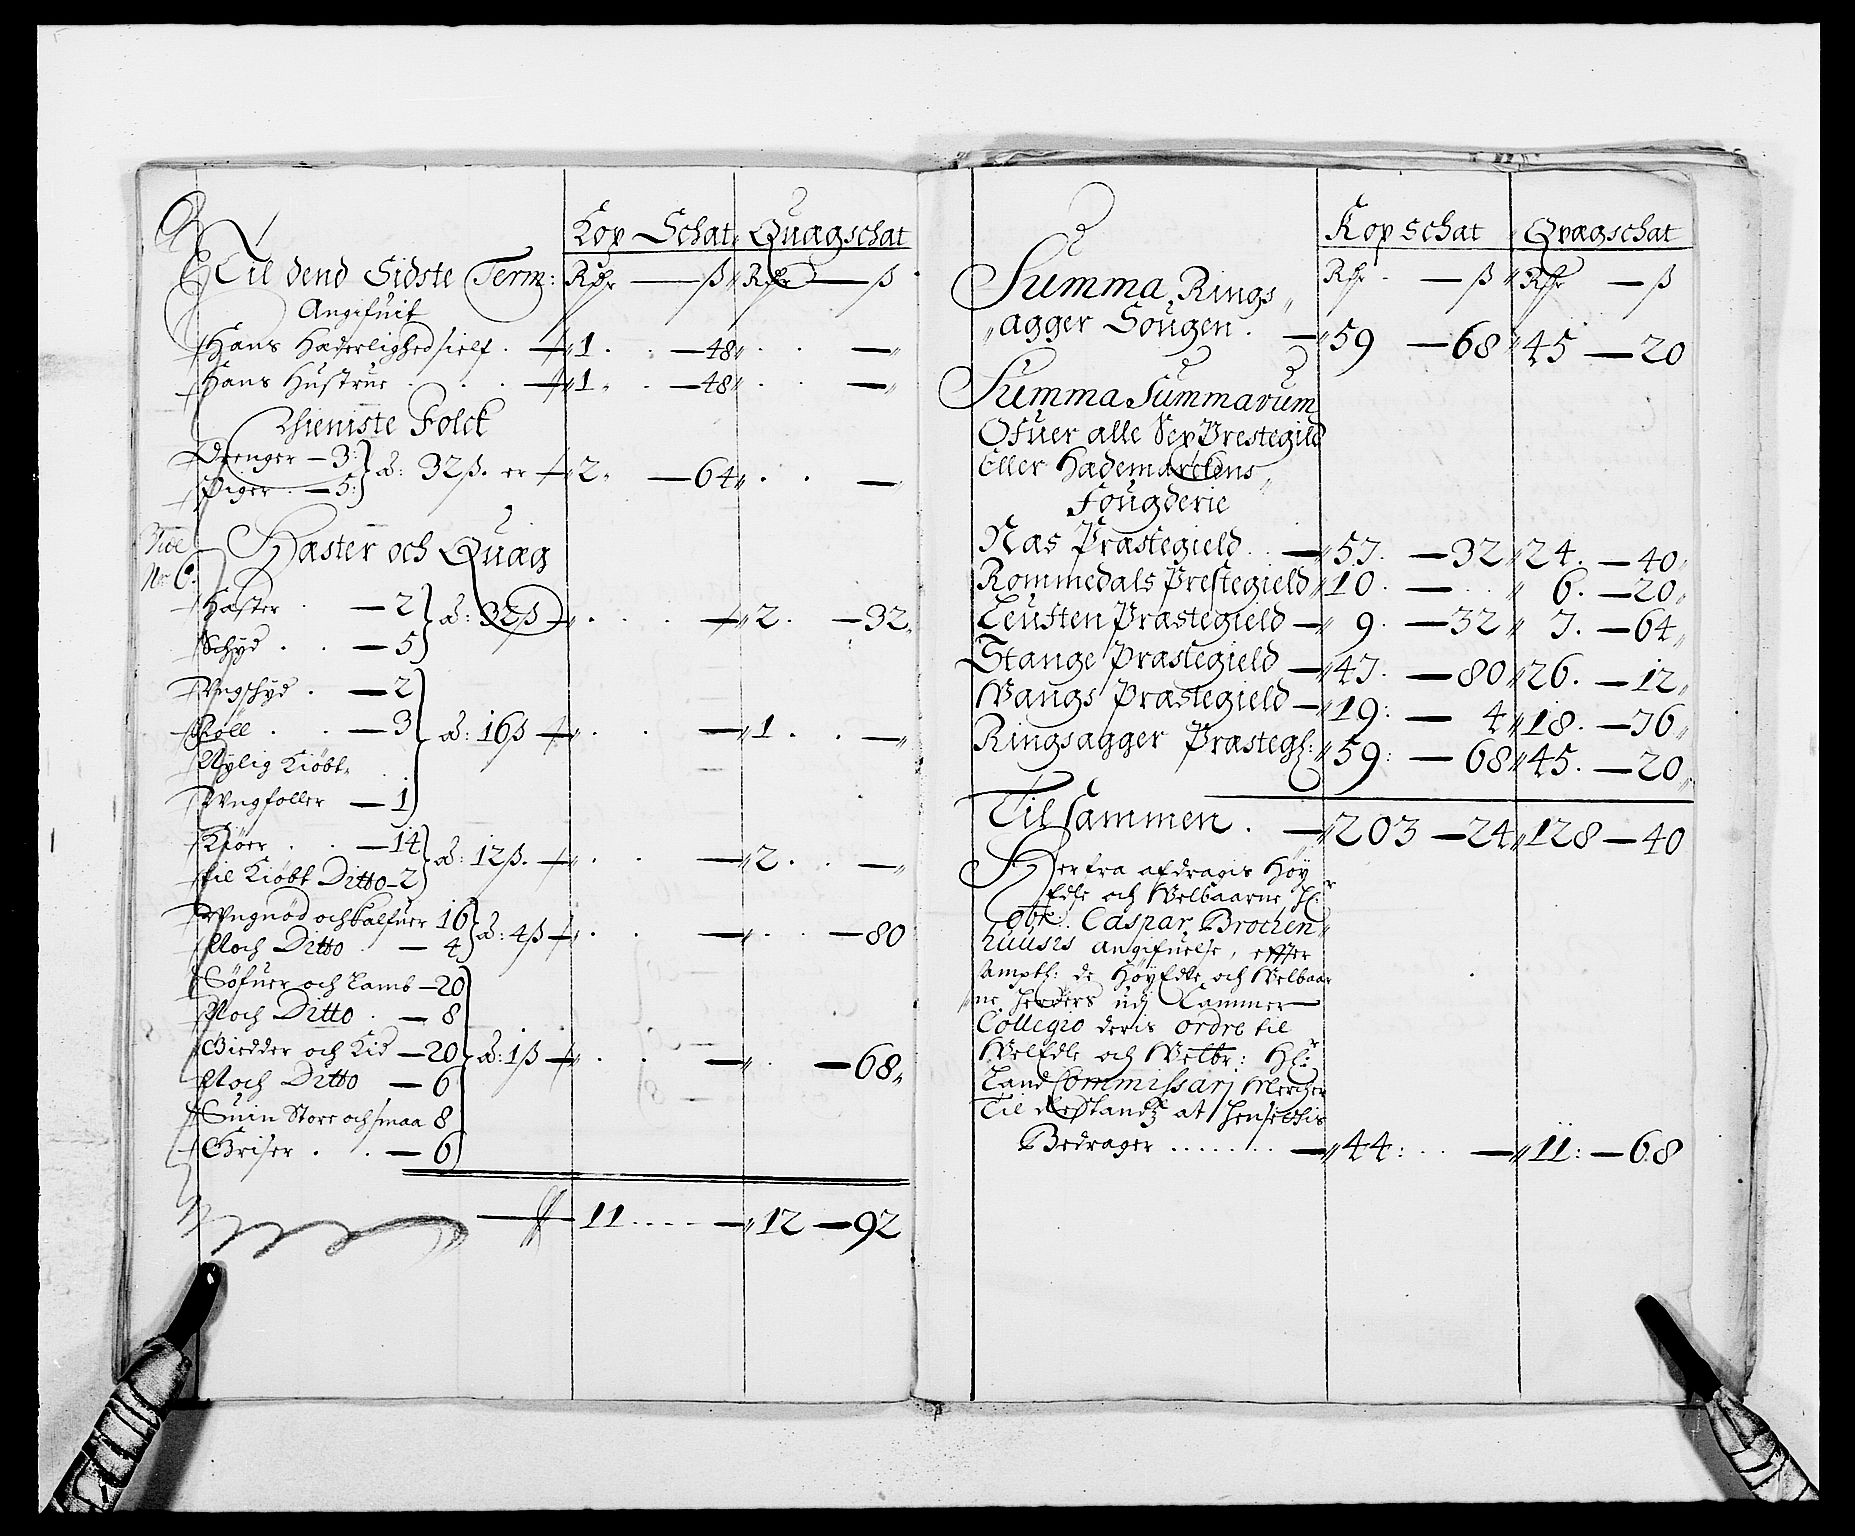 Kop Schat Quægschat
Til dend Sidste Term: Rdr — ß Rdr — ß
Angifuit
Hans Hæderlighed sielf . — 1 . . — 48 . . —
Hans Hustrue . . . — 1 . . — 48 . . —
Thieniste Folck
Drenger — 3:
Piger . — 5: } â: 32 ß. er — 2 . — 64 . . —
Vide
Nr 6. Hæster och Quæg
Hæster . — 2
Schyd . . — 5 } â: 32 ß — . . . — 2 . — 32
Ungschyd . — 2
Föll . . — 3 } â: 16 ß — . . — 1 . . —
Nylig Kiöbt
Ungfoller — 1
Kiöer . . — 14
til Kiöbt Ditto — 2 } â: 12 ß. — . . — 2 . . —
Ungnöd och Kalfuer 16
Noch Ditto . — 4 } â: 4 ß — . . — . . — 80
Söfuer och Lamb — 20
Noch Ditto . — 8
Giedder och Kid — 20 } â: 1 ß — . . — . — 68
Noch Ditto — 6
Suin Store och smaa 8
Griser . . — 6
— 11 . . . . — 12 — 92
Kop schat Qvægschat
Rdr . — ß Rdr — ß
Summa Rings
agger Sougen . — 59 — 68 45 — 20
Summa Summarum
Ofuer alle Sex Prestegild
Eller Hædemarckens
Fougderie
Næs Præstegield . . — 57 . — 32 24 . — 40
Rommedals Prestegield 10 . — . . 6 . — 20
Leuften Præstegield — 9 . — 32 7 . — 64
Stange Præstegield — 47 . — 80 26 . — 12
Wangs Præstegield — 19 : — 4 18 . — 76
Ringsagger Præsteg: 59 : — 68 45 . — 20
Til sammen . — 203 — 24 128 — 40
Herfra afdragis Höy
Edle och Welbaarne Hr
Obr: Caspar Brochen
huusis Angifuelse, effter
Ampth: de HöyEdle och Welbaar
ne Herrers udj Cammer
Collegio deris ordre til
WelEdle och Welbr: Hr:
Land Commissarj Mercher
Til Restantz at Hensettis
Bedrager . . . . . . . — 44 : . . — 11 : — 68